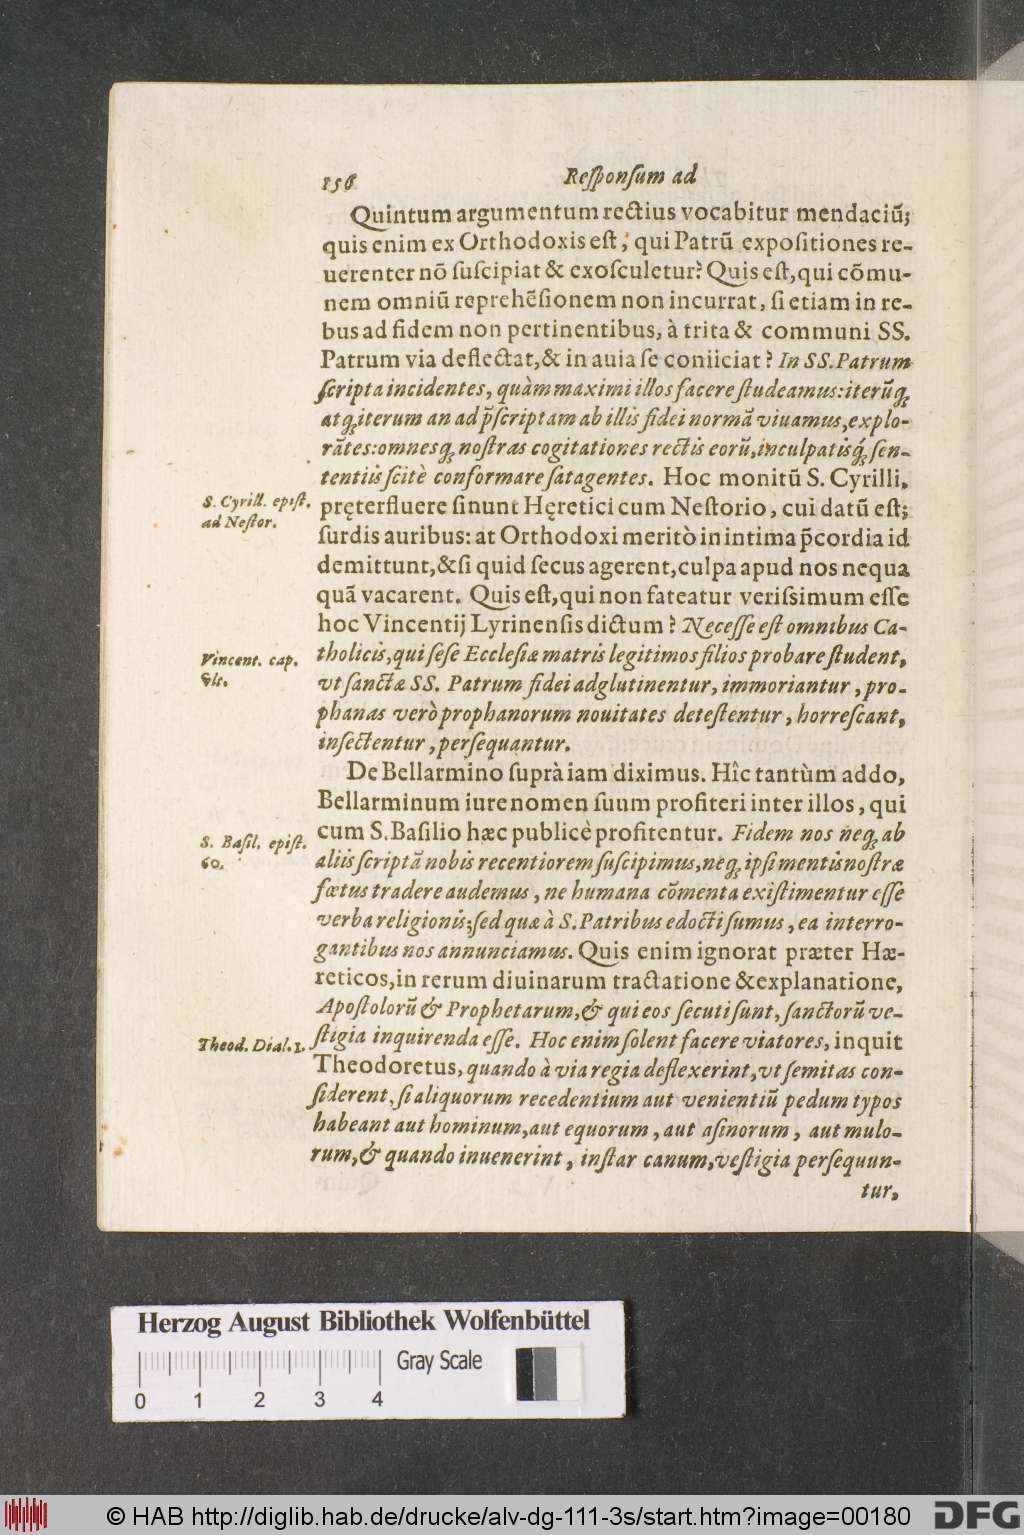 156
Reſponſum ad
Quintum argumentum rectius vocabitur mendaciũ;
quis enim ex Orthodoxis eſt, qui Patrũ expoſitiones re-
uerenter nõ ſuſcipiat & exoſculetur? Quis eſt, qui cõmu-
nem omniũ reprehẽſionem non incurrat, ſi etiam in re-
bus ad fidem non pertinentibus, à trita & communi SS.
Patrum via deflectat, & in auia ſe coniiciat? In SS. Patrum
ſcripta incidentes, quàm maximi illos facere ſtudeamus: iterũq;
atq; iterum an ad p̃ſcriptam ab illis fidei normã viuamus, explo-
rãtes: omnesq; noſtras cogitationes rectis eorũ, inculpatisq́; ſen-
tentiis ſcitè conformare ſatagentes. Hoc monitũ S. Cyrilli,
S. Cyrill. epiſt.
ad Neſtor.
pręterfluere ſinunt Hęretici cum Neſtorio, cui datũ eſt;
ſurdis auribus: at Orthodoxi meritò in intima p̃cordia id
demittunt, & ſi quid ſecus agerent, culpa apud nos nequa
quã vacarent. Quis eſt, qui non fateatur veriſsimum eſſe
hoc Vincentij Lyrinenſis dictum? Neceſſe eſt omnibus Ca-
Vincent. cap.
vlt.
tholicis, qui ſeſe Eccleſiæ matris legitimos filios probare ſtudent,
vt ſanctæ SS. Patrum fidei adglutinentur, immoriantur, pro-
phanas verò prophanorum nouitates deteſtentur, horreſcant,
inſectentur, perſequantur.
De Bellarmino ſuprà iam diximus. Hîc tantùm addo,
Bellarminum iure nomen ſuum profiteri inter illos, qui
cum S. Baſilio hæc publicè profitentur. Fidem nos neq; ab
S. Baſil. epiſt.
60.
aliis ſcriptã nobis recentiorem ſuſcipimus, neq; ipſi mentis noſtræ
fœtus tradere audemus, ne humana cõmenta exiſtimentur eſſe
verba religionis; ſed quæ à S. Patribus edocti ſumus, ea interro-
gantibus nos annunciamus. Quis enim ignorat præter Hæ-
reticos, in rerum diuinarum tractatione & explanatione,
Apoſtolorũ & Prophetarum, & qui eos ſecuti ſunt, ſanctorũ ve-
ſtigia inquirenda eſſe. Hoc enim ſolent facere viatores, inquit
Theod. Dial. 1.
Theodoretus, quando à via regia deflexerint, vt ſemitas con-
ſiderent, ſi aliquorum recedentium aut venientiũ pedum typos
habeant aut hominum, aut equorum, aut aſinorum, aut mulo-
rum, & quando inuenerint, inſtar canum, veſtigia perſequun-
tur,
Herzog August Bibliothek Wolfenbüttel
Gray Scale
0 1 2 3 4
© HAB http://diglib.hab.de/drucke/alv-dg-111-3s/start.htm?image=00180
DFG